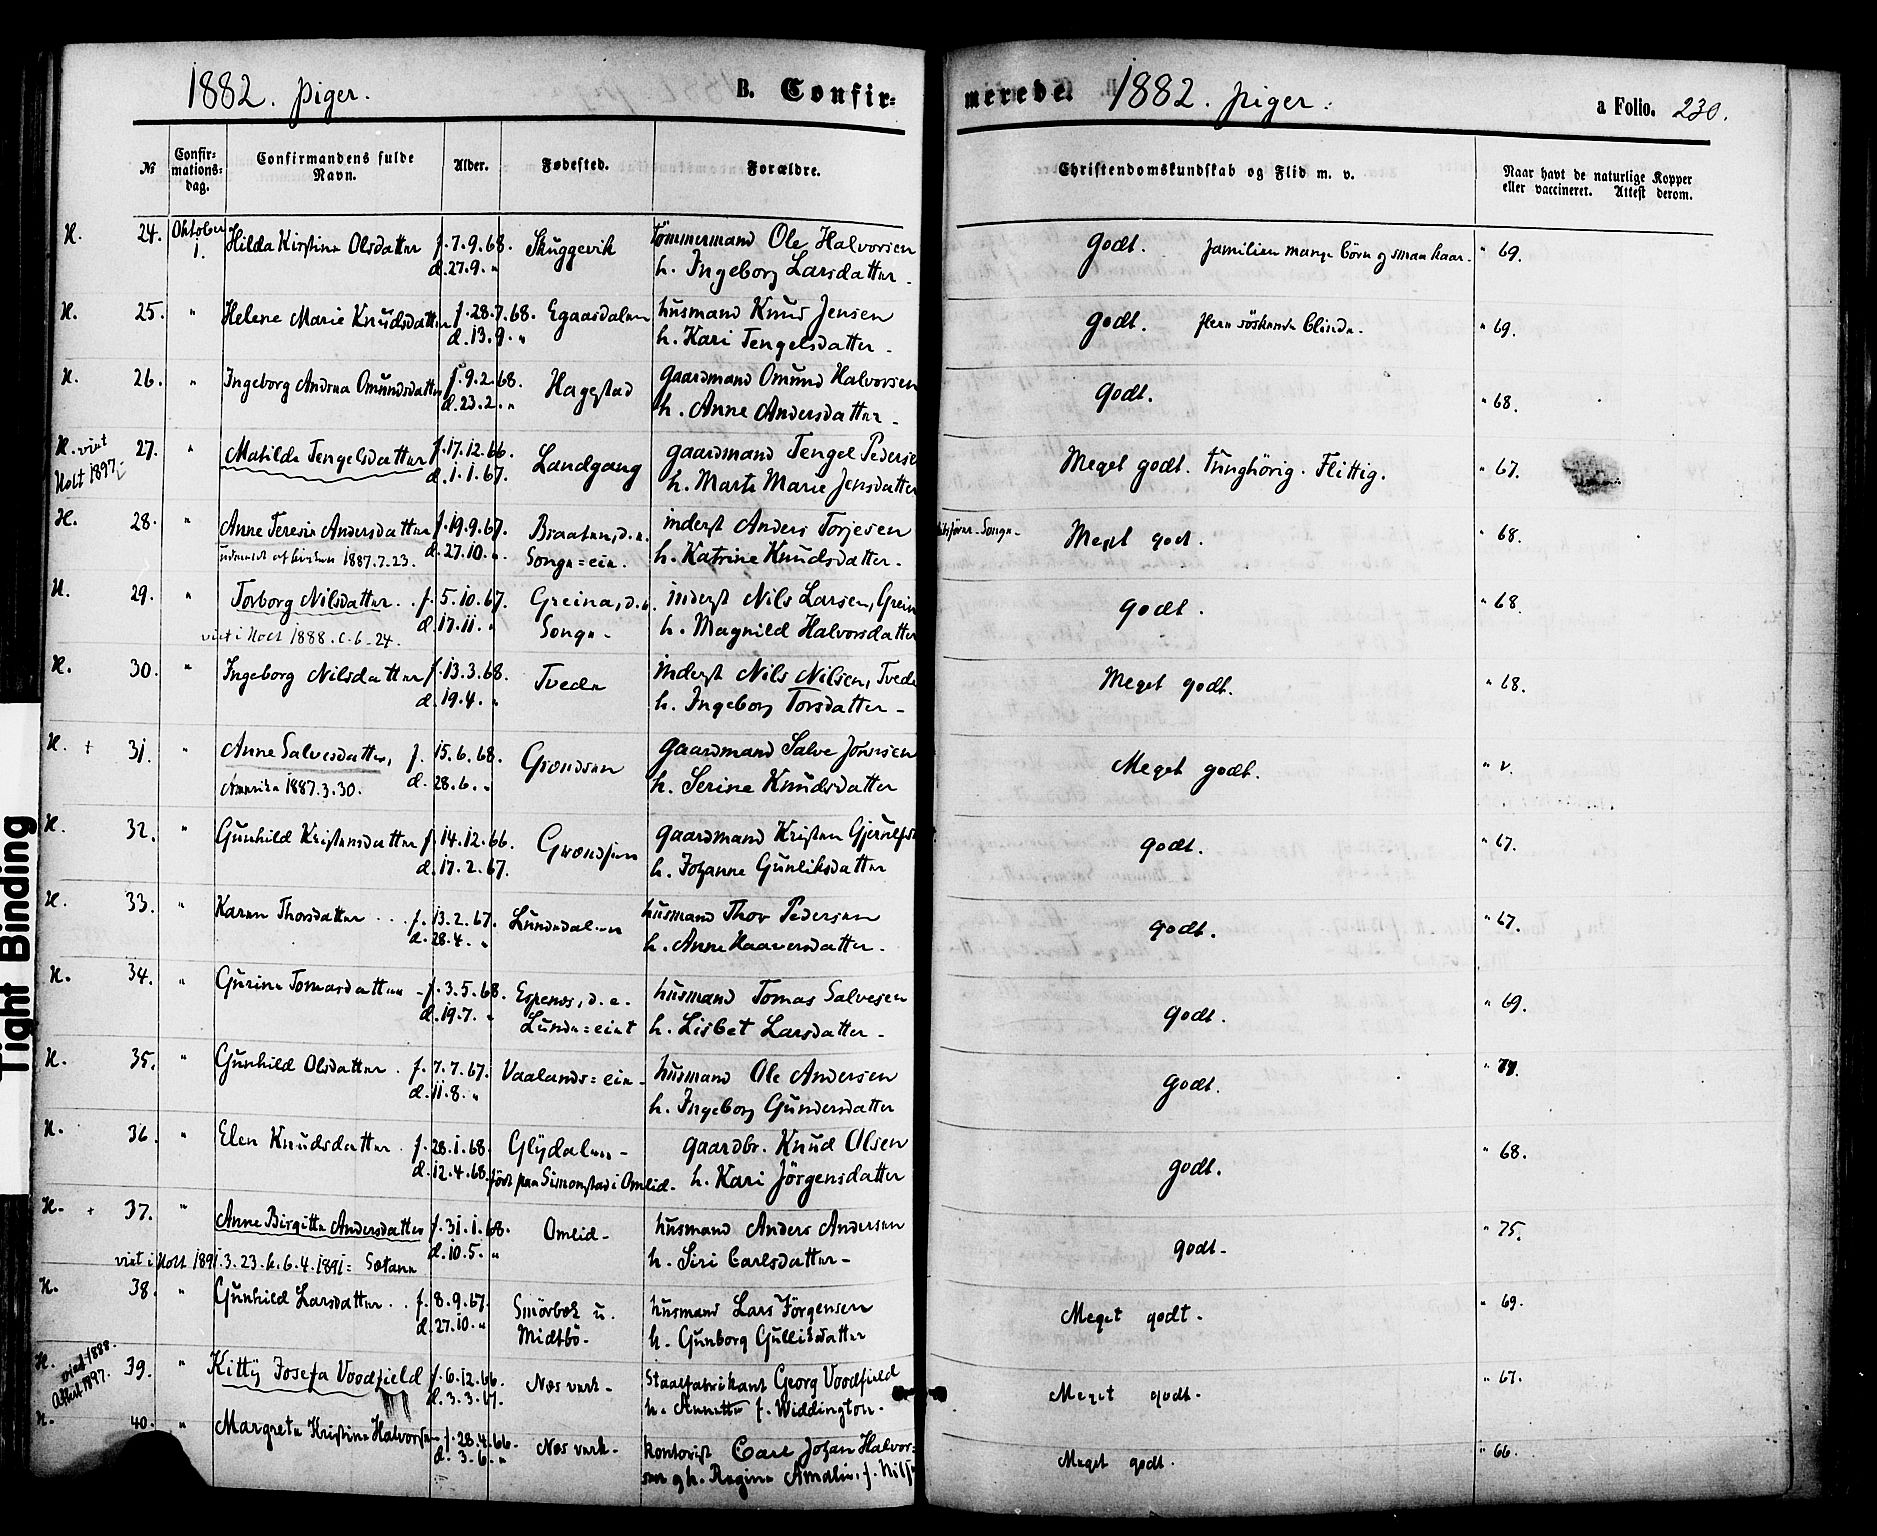 1882. piger. B. Confir= merede. 1882. piger. a Folio. 230.
№ Confir-mations=dag. Confirmandens fulde Navn. Alder. Fødested. Forældre. Christendomskundskab og Flid m. v. Naar havt de naturlige Kopper eller vaccineret. Attest derom.
N. 24. Oktober 1. Hilda Kirstine Olsdatter f. 7.9.68. Skuggevik Tömmermand Ole Halvorsen Godt. familien mange börn og smaa kaar. " 69.
d. 27.9. " h. Ingeborg Larsdatter.
N. 25. " Helene Marie Knudsdatter f. 28.7.68. Egaasdalen husmand Knud Jensen Godt. flere söskende blinde. " 69.
d. 13.9. " h. Kari Tengelsdatter.
N. 26. " Ingeborg Andrea Omundsdatter f. 9.2.68. Hagestad gaardmand Omund Halvorsen Godt. " 68.
d. 23.2. " h. Anne Andersdatter.
N. viet 27. " Matilde Tengelsdatter f. 17.12.66. Landgang gaardmand Tengel Pederse Meget godt. tunghörig. Flittig. " 67.
Holt 1897. d. 1.1.67. h. Marte Marie Jensdatter
N. 28. " Anne Teresie Andersdatter f. 19.9.67. Braaten, d. e. inderst Anders Torjesen Songe. Meget godt. " 68.
udmeldt af kirken 1887.7.23. d. 27.10. " Songe=eie. h. Katrine Knudsdatter.
N. 29. " Torborg Nilsdatter . . f. 5.10.67. Greina, d. e. inderst Nils Larsen, Grein Godt. " 68.
viet i Holt 1888. 6.24. d. 17.11. " Songe. h. Magnild Halvorsdatter
N. 30. " Ingeborg Nilsdatter f. 13.3.68. Tvede inderst Nils Nilsen, Tvede Meget godt. " 68.
d. 19.4. " h. Ingeborg Torsdatter.
N. + 31. " Anne Salvesdatter, f. 15.6.68. Grændsen gaardmand Salve Meget godt. " v.
Amerika 1887.3.30. d. 28.6. " h. Serine Knudsdatter
N. 32. " Gunhild Kristensdatter f. 14.12.66. Grændsen gaardmand Kristen Godt. " 67.
d. 17.2.67. h. Johanne Gunliksdatter
N. 33. " Karen Thorsdatter . . . f. 13.2.67. Lundedalen husmand Thor Pedersen Godt. " 67.
d. 28.4. " h. Anne Haaversdatter.
N. 34. " Gurine Tomasdatter f. 3.5.68. Espenes, d. e. husmand Tomas Salvesen Godt. " 69.
d. 19.7. " Lunde=eiet h. Lisbet Larsdatter.
N. 35. " Gunhild Olsdatter . f. 7.7.67. Vaalands=eie. husmand Ole Andersen Godt.
d. 11.8. " h. Ingeborg Gundersdatter
N. 36. " Elen Knudsdatter . f. 28.1.68. Glydalen. gaardbr. Knud Olsen Godt. " 68.
d. 12.4.68. födt paa Simonstad i Omlid. h. Kari Jörgensdatter
N. + 37. " Anne Birgitte Andersdatter f. 31.1.68. Omlid. husmand Anders Andersen Godt. " 75.
viet i Holt 1891.3.23. k. 6.4.1891= Sætane d. 10.5. " h. Siri Carlsdatter.
N. 38. " Gunhild Larsdatter . . f. 8.9.67. Smörbæk u. husmand Lars Jörgensen Meget godt. " 69.
d. 27.10. " Midtbö. h. Gunborg Gulliksdatter
N. viet 1888. 39. " Kitty Josefa Voodfield f. 6.12.66. Næs verk. Staalfabrikant Georg Voodfield Meget godt. " 67.
Attest 1897. d. 3.3.67. h. Annette f. Widdington.
N. 40. " Margrete Kristine Halvorsen f. 28.4.66. Næs verk. kontorist Carl Johan Halvor= Meget godt. " 66.
d. 3.6. " sen og h. Regine Amalie f. Nils
Tight Binding